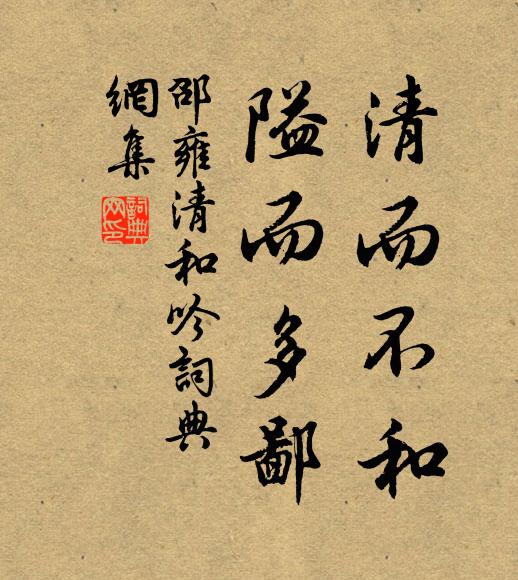 清而不和
隘而多鄙
邵雍清和吟詞典
網集
詞典
网印